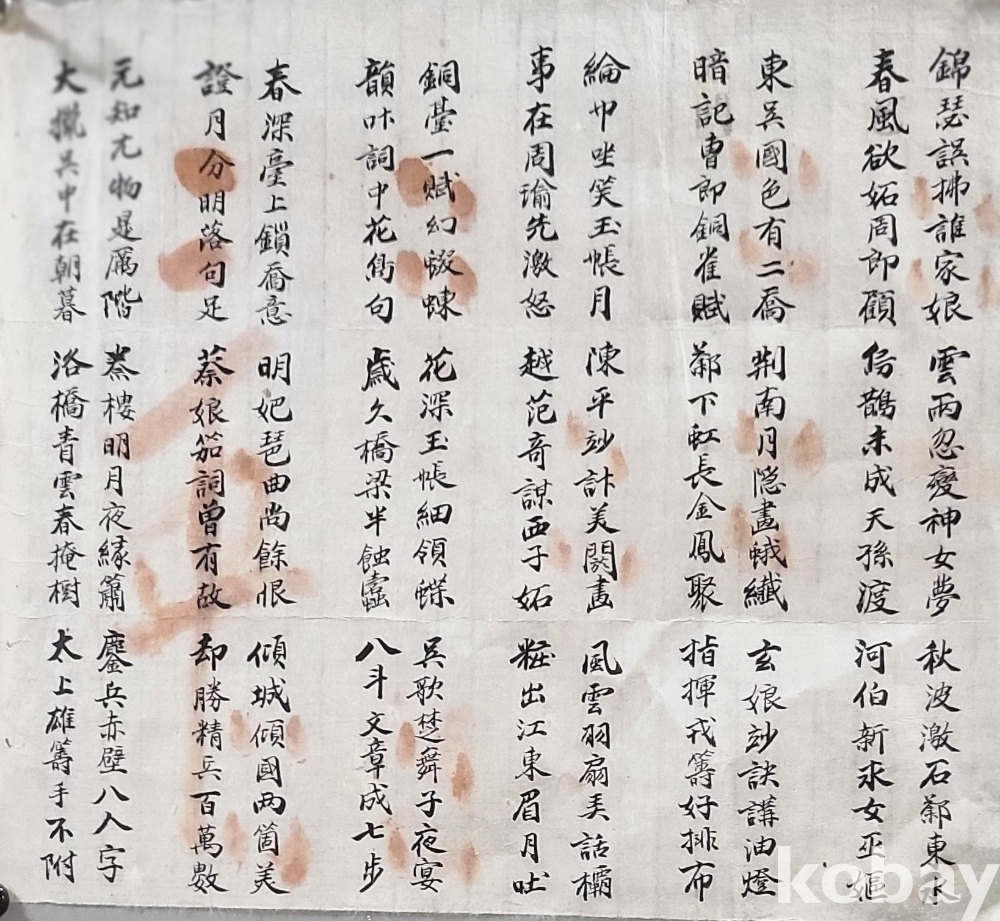 錦瑟誤拂誰家娘 雲雨忽變神女夢 秋波激石鄴東水
春風欲妬周郎顧 烏鵲未成天孫渡 河伯新求女巫嫗
東吳國色有二喬 荆南月隱畫蛾纖 玄娘妙訣講油燈
暗記曺郎銅雀賦 鄴下虹長金鳳聚 指揮戎籌好排布
綸巾坐笑玉帳月 陳平妙計美閼畫 風雲羽扇美話欛
事在周瑜先激怒 越范奇謀西子妬 粧出江東眉月吐
銅臺一賦幻蝃蝀 花深玉帳細領蝶 吳歌楚舞子夜宴
韻叶詞中花鳥句 歲久橋梁半蝕蠹 八斗文章成七步
春深臺上鎖喬意 明妃琵曲尚餘恨 傾城傾國兩箇美
證月分明落句足 蔡娘笳詞曾有故 却勝精兵百萬數
元知尤物是厲階 樓明月夜緣簫 鏖兵赤壁八人字
大獵吳中在朝暮 洛橋青雲春掩樹 太上雄籌手不附
kobay